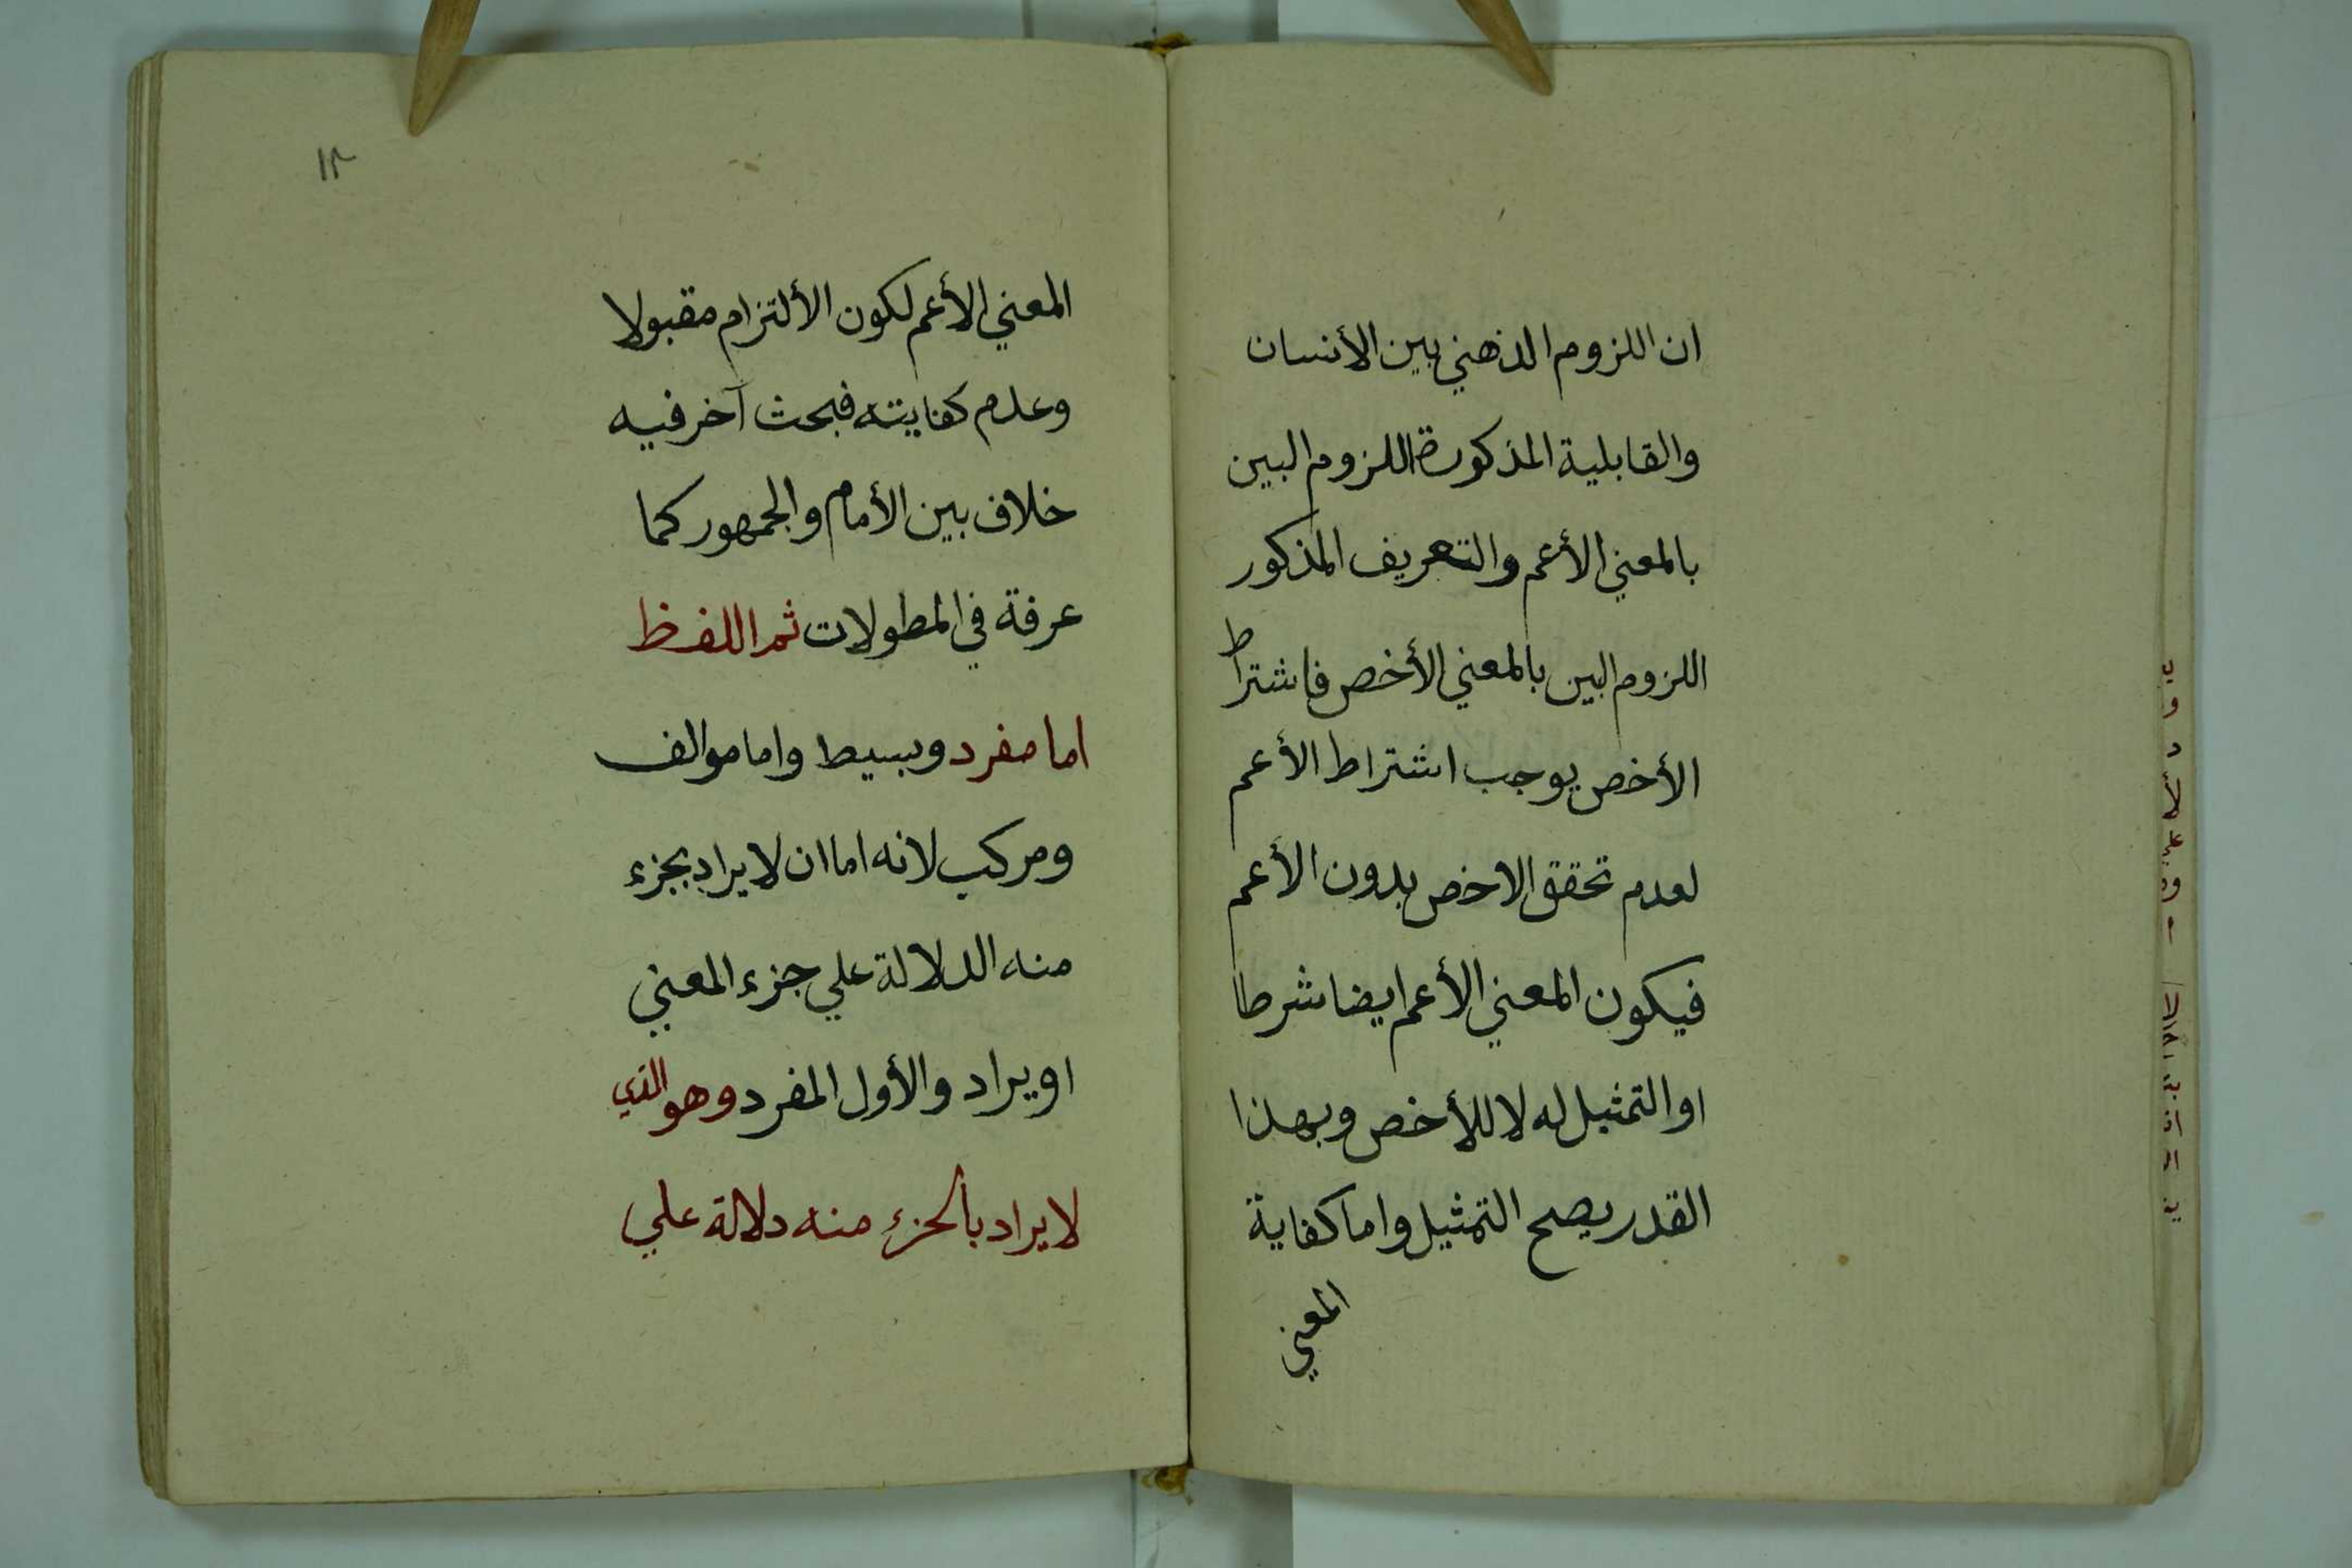 ان اللزوم الذهني بين الأنسان
والقابلية المذكورة اللزوم البين
بالمعني الأعم والتعريف المذكور
اللزوم البين بالمعني الأخص فاشتراط
الأخص يوجب اشتراط الأعم
لعدم تحقق الاخص بدون الأعم
فيكون المعني الأعم ايضا شرطا
او التمثيل له لا للأخص وبهذا
القدر يصح التمثيل واما كفاية
المعني
١٢
المعني الأعم لكون الألتزام مقبولا
وعدم كفايته فبحث آخر فيه
خلاف بين الأمام والجمهور كما
عرفة في المطولات ثم اللفظ
اما مفرد وبسيط واما موالف
ومركب لانه اما ان لا يراد بجزء
منه الدلالة علي جزء المعني
او يراد والأول المفرد وهو الذي
لا يراد بالجزء منه دلالة علي